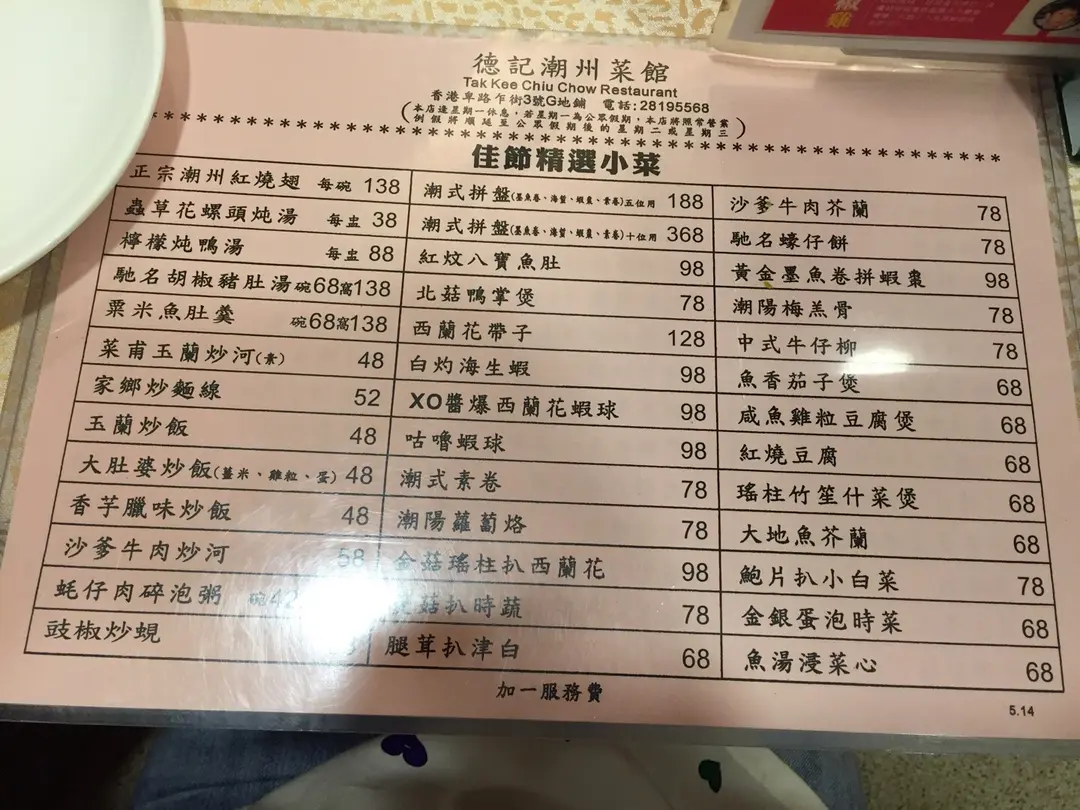 德記潮州菜館
Tak Kee Chiu Chow Restaurant
香港卑路乍街3號G地鋪 電話:28195568
(本店逢星期一休息,若星期一為公眾假期,本店將照常營業
例假將順延至公眾假期後的星期二或星期三)
佳節精選小菜
正宗潮州紅燒翅 每碗 138
蟲草花螺頭炖湯 每盅 38
檸檬炖鴨湯 每盅 88
馳名胡椒豬肚湯 碗68窩138
粟米魚肚羹 碗68窩138
菜甫玉蘭炒河(素) 48
家鄉炒麵線 52
玉蘭炒飯 48
大肚婆炒飯(薑米、雞粒、蛋) 48
香芋臘味炒飯 48
沙爹牛肉炒河 58
蚝仔肉碎泡粥 碗42
豉椒炒蜆
潮式拼盤(墨魚卷、海蜇、蝦棗、素卷)五位用 188
潮式拼盤(墨魚卷、海蜇、蝦棗、素卷)十位用 368
紅炆八寶魚肚 98
北菇鴨掌煲 78
西蘭花帶子 128
白灼海生蝦 98
XO醬爆西蘭花蝦球 98
咕嚕蝦球 98
潮式素卷 78
潮陽蘿蔔烙 78
金菇瑤柱扒西蘭花 98
菇扒時蔬 78
腿茸扒津白 68
沙爹牛肉芥蘭 78
馳名蠔仔餅 78
黃金墨魚卷拼蝦棗 98
潮陽梅羔骨 78
中式牛仔柳 78
魚香茄子煲 68
咸魚雞粒豆腐煲 68
紅燒豆腐 68
瑤柱竹笙什菜煲 68
大地魚芥蘭 68
鮑片扒小白菜 78
金銀蛋泡時菜 68
魚湯浸菜心 68
加一服務費
5.14